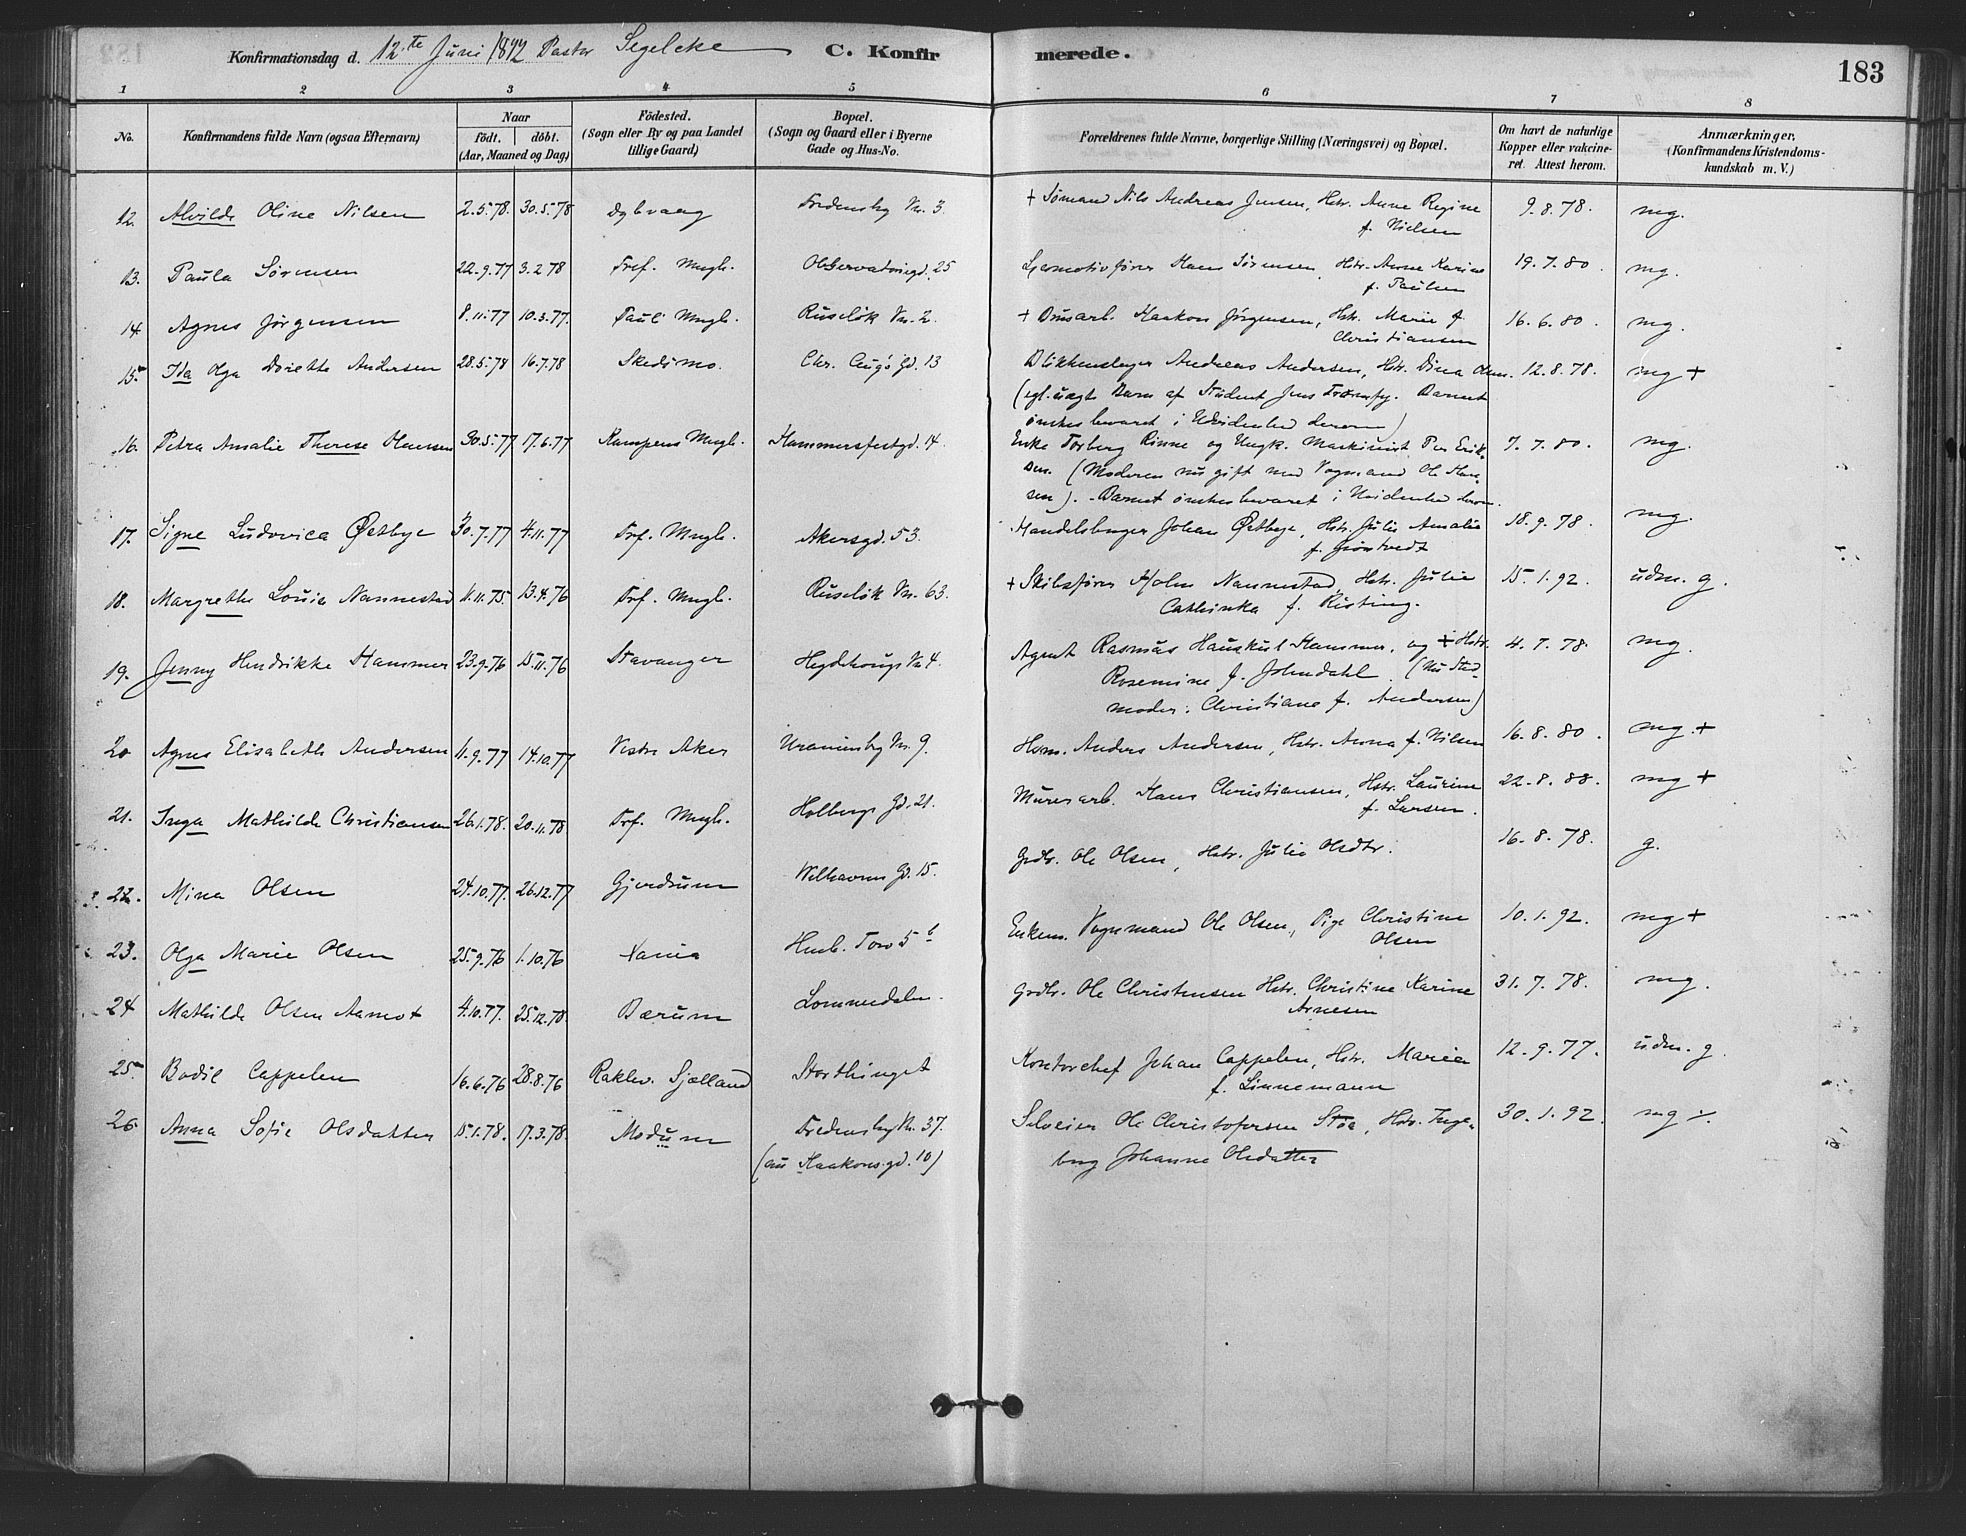 Konfirmationsdag d. 12.te Juni 1892 Pastor Segelcke C. Konfirmerede. 183
1 2 3 4 5 6 7 8
No. Konfirmandens fulde Navn (ogsaa Efternavn) Naar födt. döbt. (Aar, Maaned og Dag) Födested. (Sogn eller By og paa Landet tillige Gaard) Bopæl. (Sogn og Gaard eller i Byerne Gade og Hus-No. Forældrenes fulde Navne, borgerlige Stilling (Næringsvei) og Bopæl. Om havt de naturlige Kopper eller vakcineret. Attest herom. Anmærkninger. (Konfirmandens Kristendomskundskab m. V.)
12. Alvilde Oline Nilsen 2.5.78. 30.5.78 Dybvaag Fredensby Vn. 3. + Sømand Nils Andreas Jensen, Hstr. Anne Regine 9.8.78. mg.
f. Nielsen
13. Paula Sørensen 22.9.77 3.2.78 Tref. Mngh. Observatoriegd. 25 Locomotivfører Hans Sørensen, Hstr. Anne Karine 19.7.80. mg.
f. Paulsen
14. Agnes Jørgensen 8.11.77 10.3.77. Paul Mngh. Ruseløk Vn. 2. + Brusarb. Haakon Jørgensen, Hstr. Marie f. 16.6.80. mg.
Christiansen
15. Ida Olga Dorette Andersen 28.5.78 16.7.78 Skedsmo. Chr. Augs Gd. 13 Blikkenslager Andreas Andersen, Hstr. Dina Olsen. 12.8.78. mg +
(egl. uægte Barn af Student Jens . Barnet
ønskes bevaret i Uvidenhed derom)
16. Petra Amalie Therese Hansen 30.5.77 17.6.77 Kampens Mngh. Hammersfestgd. 14. Enke Torberg Rinne og Ungk. Maskinist Per Erik- 7.7.80. mg.
sen. (Moderen nu gift med Vognmand Ole Han-
sen). Barnet ønskes bevaret i Uvidenhed derom.
17. Signe Ludovica Østbye 30.7.77 4.11.77 Trf. Mngh. Akersgd. 53. Handelsborger Johan Østbye, Hstr. Julie Amalie 18.9.78. mg.
f. Grøntvedt
18. Margrethe Louise Nannestad 11.11.75. 13.4.76 Trf. Mngh. Ruseløk Vn. 63. + Skibsfører Holm Nannestad, Hstr. Julie 15.1.92. udm. g.
Cathinka f. Risting.
19. Jenny Hendrikke Hammer 23.9.76 15.11.76 Stavanger Hegdehaugs Vn 4. Agent Rasmus Hauskul Hammer, og + Hstr. 4.7.78. mg.
Rosemine f. Johndahl. (Nu Sted-
moder: Christiane f. Andersen)
20 Agnes Elisabeth Andersen 11.9.77 14.10.77 Vestre Aker Uranienby Vn. 9. Hsm. Anders Andersen, Hstr. Anna f. Nilsen 16.8.80. mg. +
21. Inga Mathilde Christiansen 26.1.78. 20.11.78 Trf. Mngh. Holbergs Gd. 21. Murerarb. Hans Christiansen, Hstr. Laurine 22.8.88. mg +
f. Larsen.
22. Mina Olsen 24.10.77 26.12.77 Gjerdrum Welhavens Gd. 15. Grdbr. Ole Olsen, Hstr. Julie Olsdtr. 16.8.78. g.
23. Olga Marie Olsen 25.9.76 1.10.76 Xania Husb. Torv 5 b Enkem. Vognmand Ole Olsen, Pige Christine 10.1.92. mg +
Olsen
24 Mathilde Olsen Aamot 4.10.77. 25.12.78. Bærum Lommedalen. Grdbr. Ole Christensen Hstr. Christine Karine 31.7.78. mg.
Arnesen
25. Bodil Cappelen 16.6.76 28.8.76 Raklev. Sjælland Storthinget Kontorchef Johan Cappelen, Hstr. Marie 12.9.77. udm. g.
f. Linnemann
26. Anna Sofie Olsdatter 15.1.78. 17.3.78. Modum Fredensby Vn. 37. Selveier Ole Christofersen Støa, Hstr. Inge- 30.1.92. mg ÷
(nu Haakonsgd. 10) borg Johanne Olsdatter